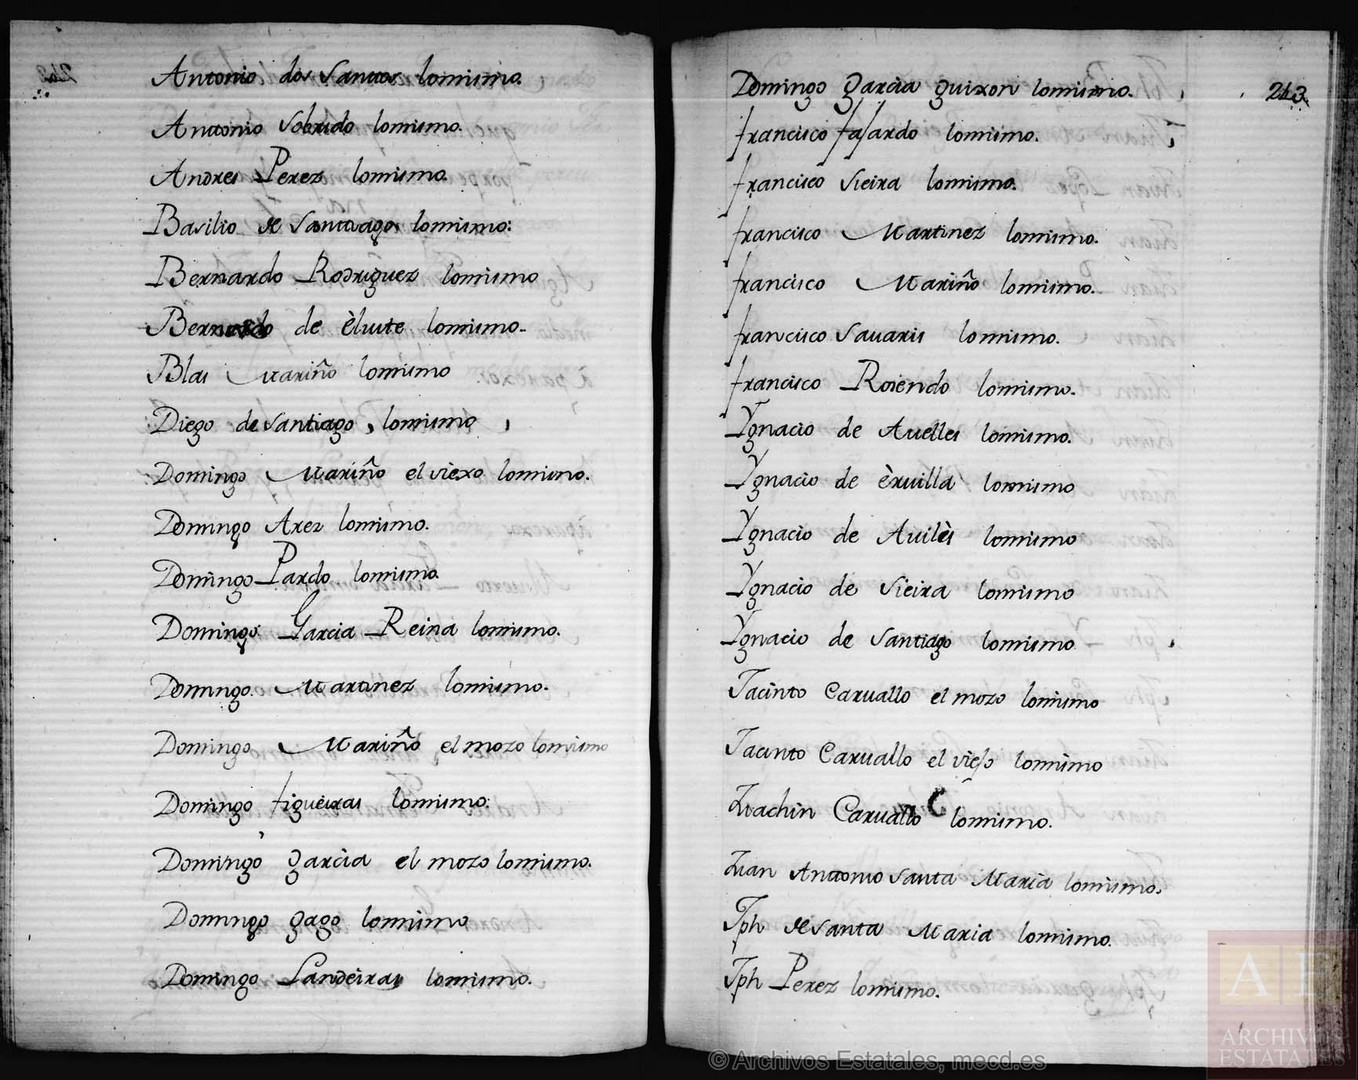 Antonio dos Santos lomismo.
Antonio Sobrido lomismo.
Andres Perez lomismo.
Basilio de Santiago lomismo.
Bernardo Rodriguez lomismo
Bernardo de èluite lomismo.
Blas Mariño lomismo
Diego de Santiago, lomismo,
Domingo Mariño el viexo lomismo.
Domingo Arez lomismo.
Domingo Pardo lomismo.
Domingo Garcia Reina lomismo.
Domingo Martinez lomismo.
Domingo Mariño el mozo lomismo
Domingo figueiras lomismo.
Domingo garcia el mozo lomismo.
Domingo gago lomismo
Domingo Landeiras lomismo.
213.
Domingo garcia guixon lomismo.
francisco fajardo lomismo.
francisco Vieira lomismo.
francisco Martinez lomismo.
francisco Mariño lomismo.
francisco Savaris lomismo.
francisco Rosendo lomismo.
Ygnacio de Auelles lomismo.
Ygnacio de èruilla lomismo
Ygnacio de Auilès lomismo
Ygnacio de Vieira lomismo
Ygnacio de Santiago lomismo
Jacinto Caruallo el mozo lomismo
Jacinto Caruallo el viejo lomismo
Juachin Caruallo lomismo.
Juan Antonio Santa Maria lomismo.
Jph de Santa Maria lomismo.
Jph Perez lomismo.
© Archivos Estatales, mecd.es
A E
ARCHIVOS
ESTATALES